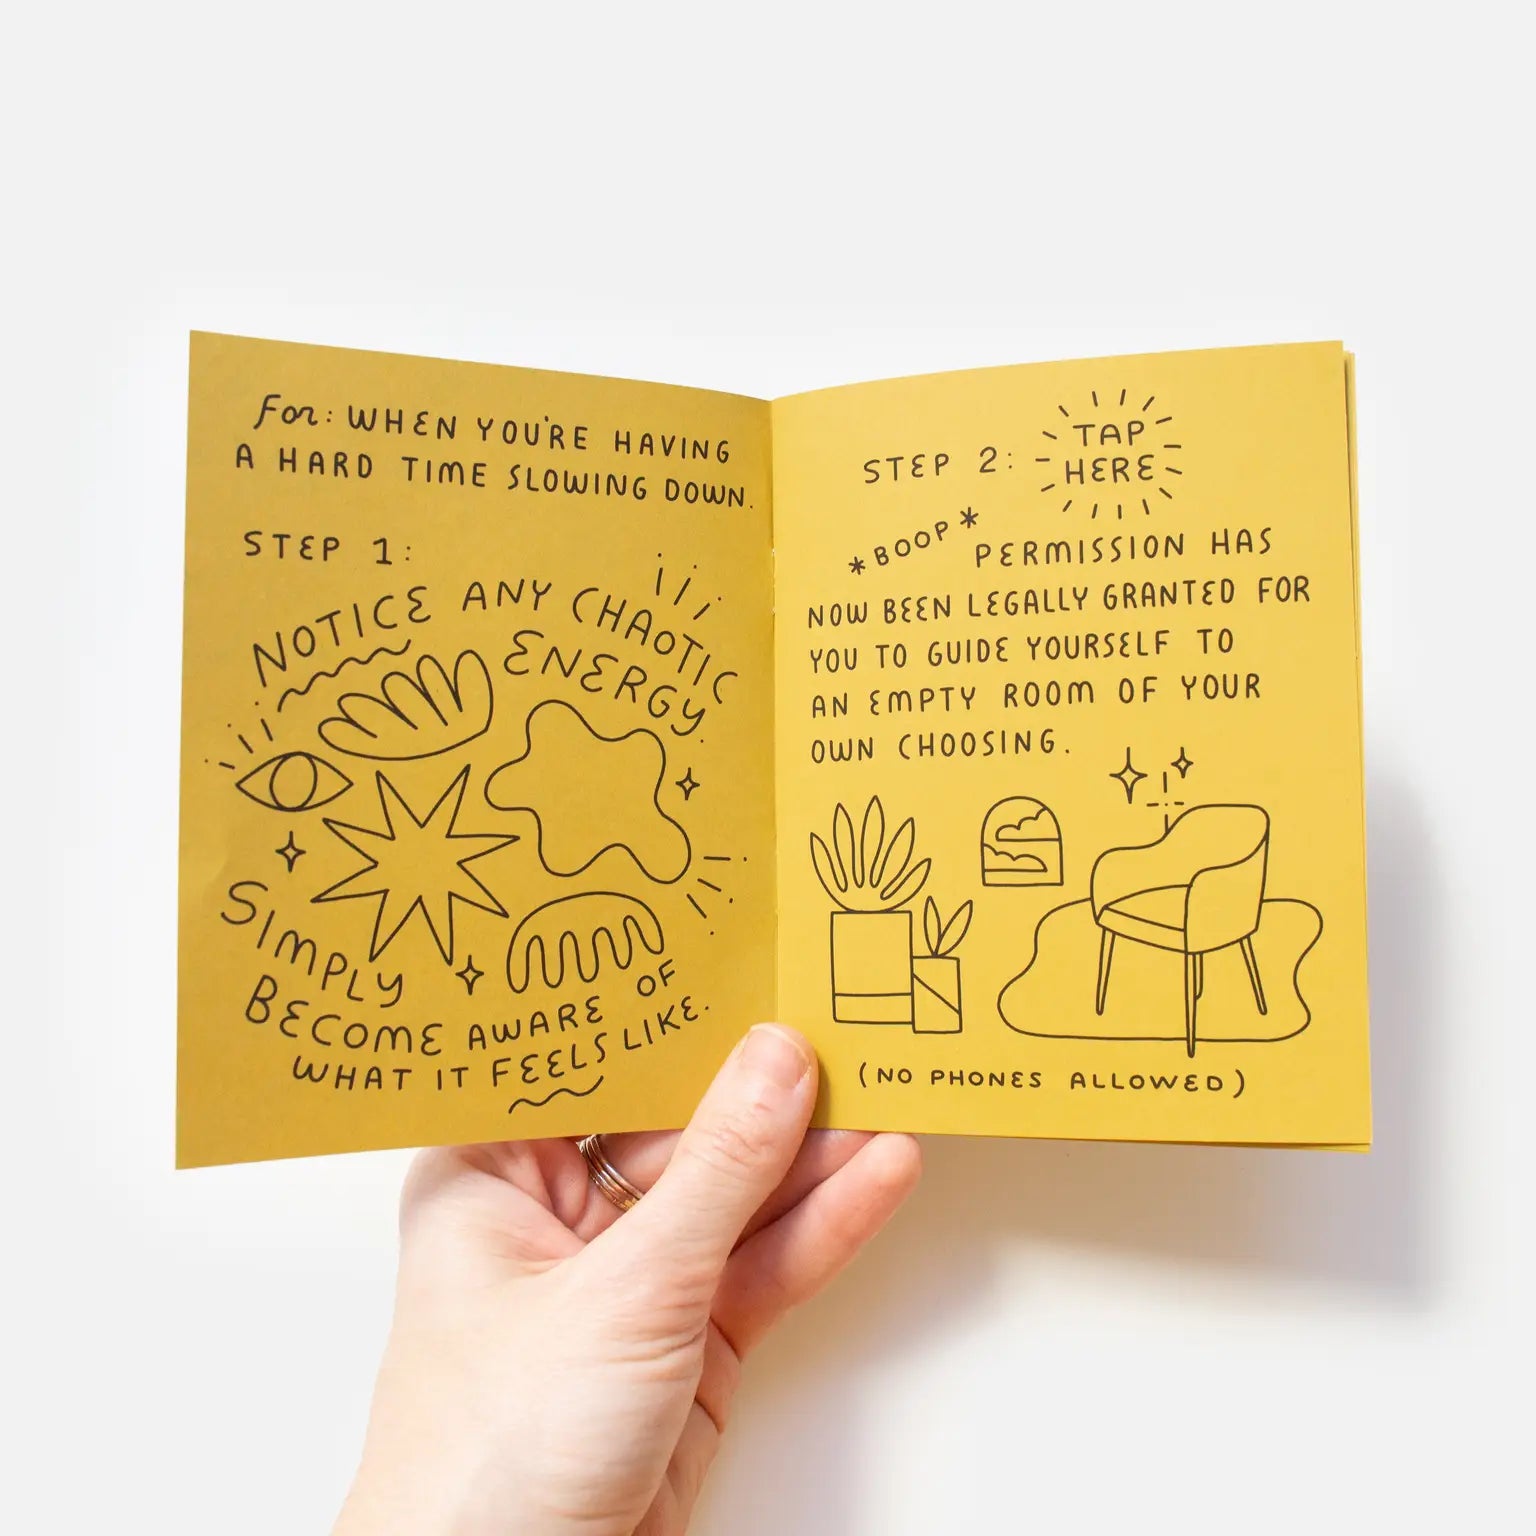 For: WHEN YOU'RE HAVING
A HARD TIME SLOWING DOWN.
STEP 1:
NOTICE ANY CHAOTIC
ENERGY.
SIMPLY
BECOME AWARE OF
WHAT IT FEELS LIKE.
STEP 2: TAP
HERE
*BOOP* PERMISSION HAS
NOW BEEN LEGALLY GRANTED FOR
YOU TO GUIDE YOURSELF TO
AN EMPTY ROOM OF YOUR
OWN CHOOSING.
(NO PHONES ALLOWED)